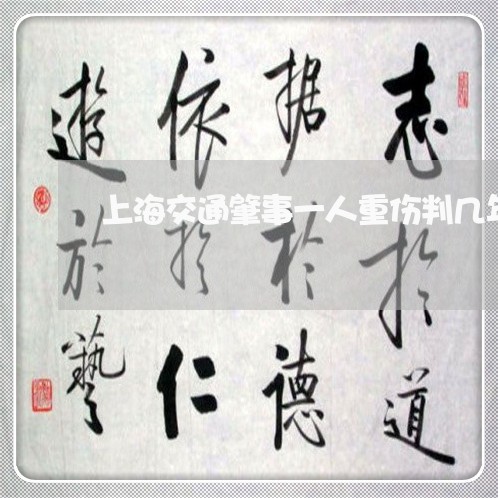 志扵道
据扵德
依扵仁
遊於藝
上海交通肇事一人重伤判几